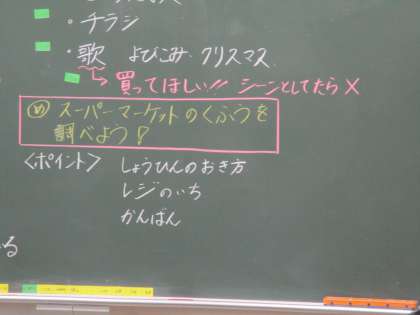 ・チラシ
・歌 よびこみ・クリスマス
買ってほしい!! シーンとしてたら×
め スーパーマーケットのくふうを
調べよう!
<ポイント> しょうひんのおき方
レジのいち
かんばん
る